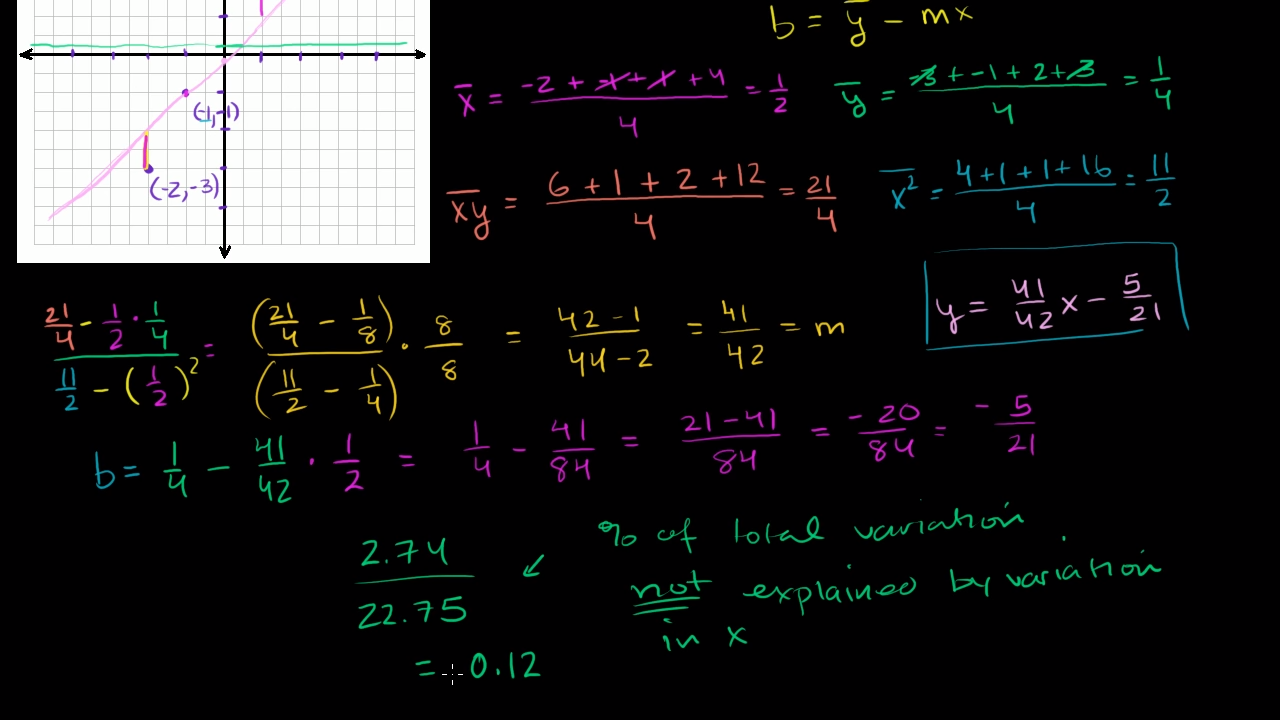 b = y̅ - mx
x̅ = (-2 + -1 + 1 + 4)/4 = 1/2
y̅ = (-3 + -1 + 2 + 3)/4 = 1/4
(-1,-1)
(-2,-3)
x̅y̅ = (6 + 1 + 2 + 12)/4 = 21/4
x̅² = (4+1+1+16)/4 = 11/2
y = 41/42 x - 5/21
(21/4 - 1/2 · 1/4)/(11/2 - (1/2)²) = (21/4 - 1/8)/(11/2 - 1/4) · 8/8 = (42-1)/(44-2) = 41/42 = m
b = 1/4 - 41/42 · 1/2 = 1/4 - 41/84 = (21-41)/84 = -20/84 = -5/21
2.74/22.75
= 0.12
% of total variation
not explained by variation
in x